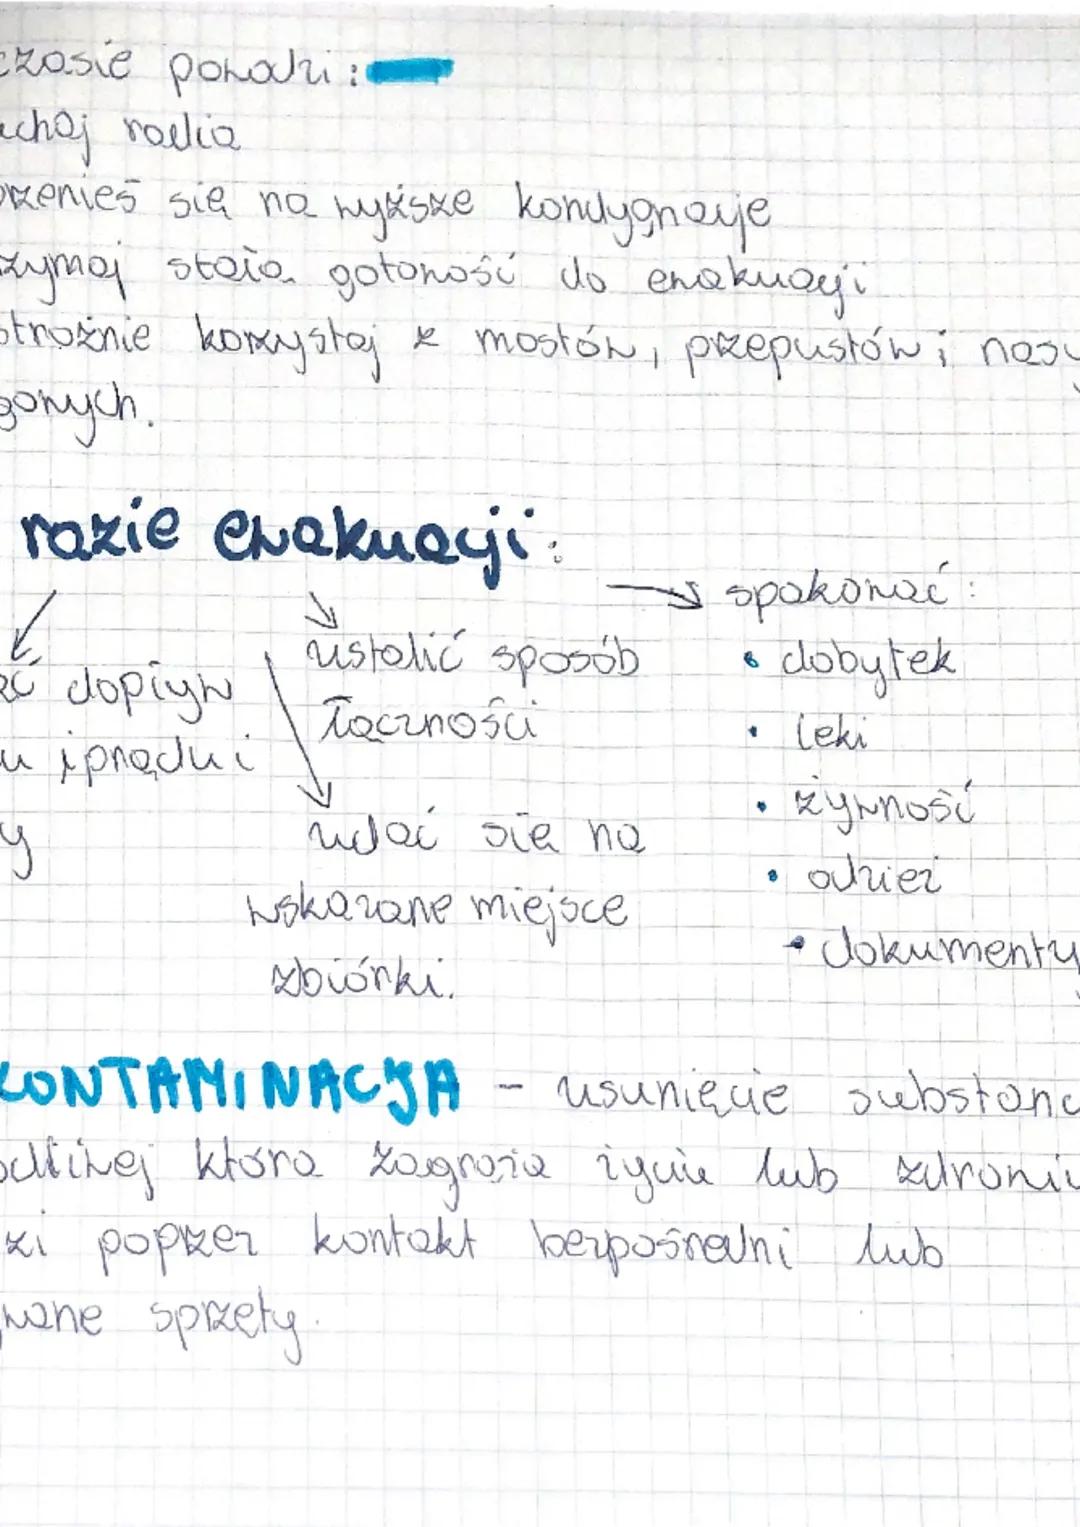 czasie powodzi:
uchaj radia
przenieś się na wyższe kondygnacje
zymaj stałą gotowość do ewakuacji
strożnie korzystaj z mostów, przepustów i nasy
gowych.
razie ewakuacji:
→ spakować:
ustalić sposób
łączności
• dobytek
• leki
• żywność
• odzież
• dokumenty
ąć dopływ
u i prądu i
y
udać się na
wskazane miejsce
zbiórki.
KONTAMINACJA - usunięcie substanc
odliwej która zagraża życiu lub zdrowiu
zi poprzez kontakt bezpośredni lub
wane sprzęty.